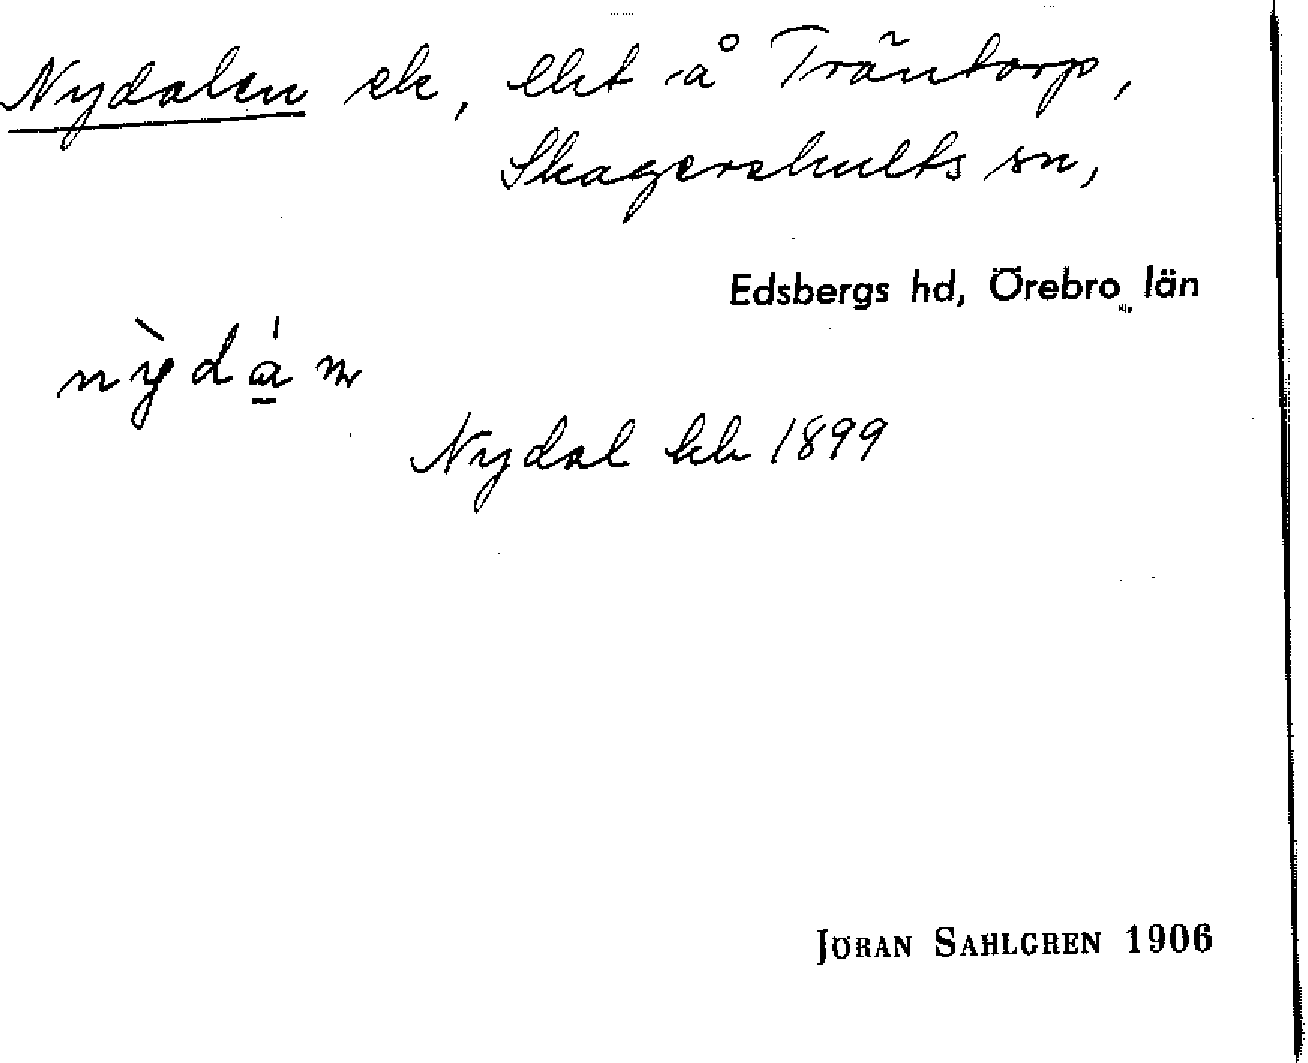 Nydalen ek, lht å Träntorp,
Skagershults sn,
Edsbergs hd, Örebro län
Nydal kk 1899
JÖRAN SAHLGREN 1906